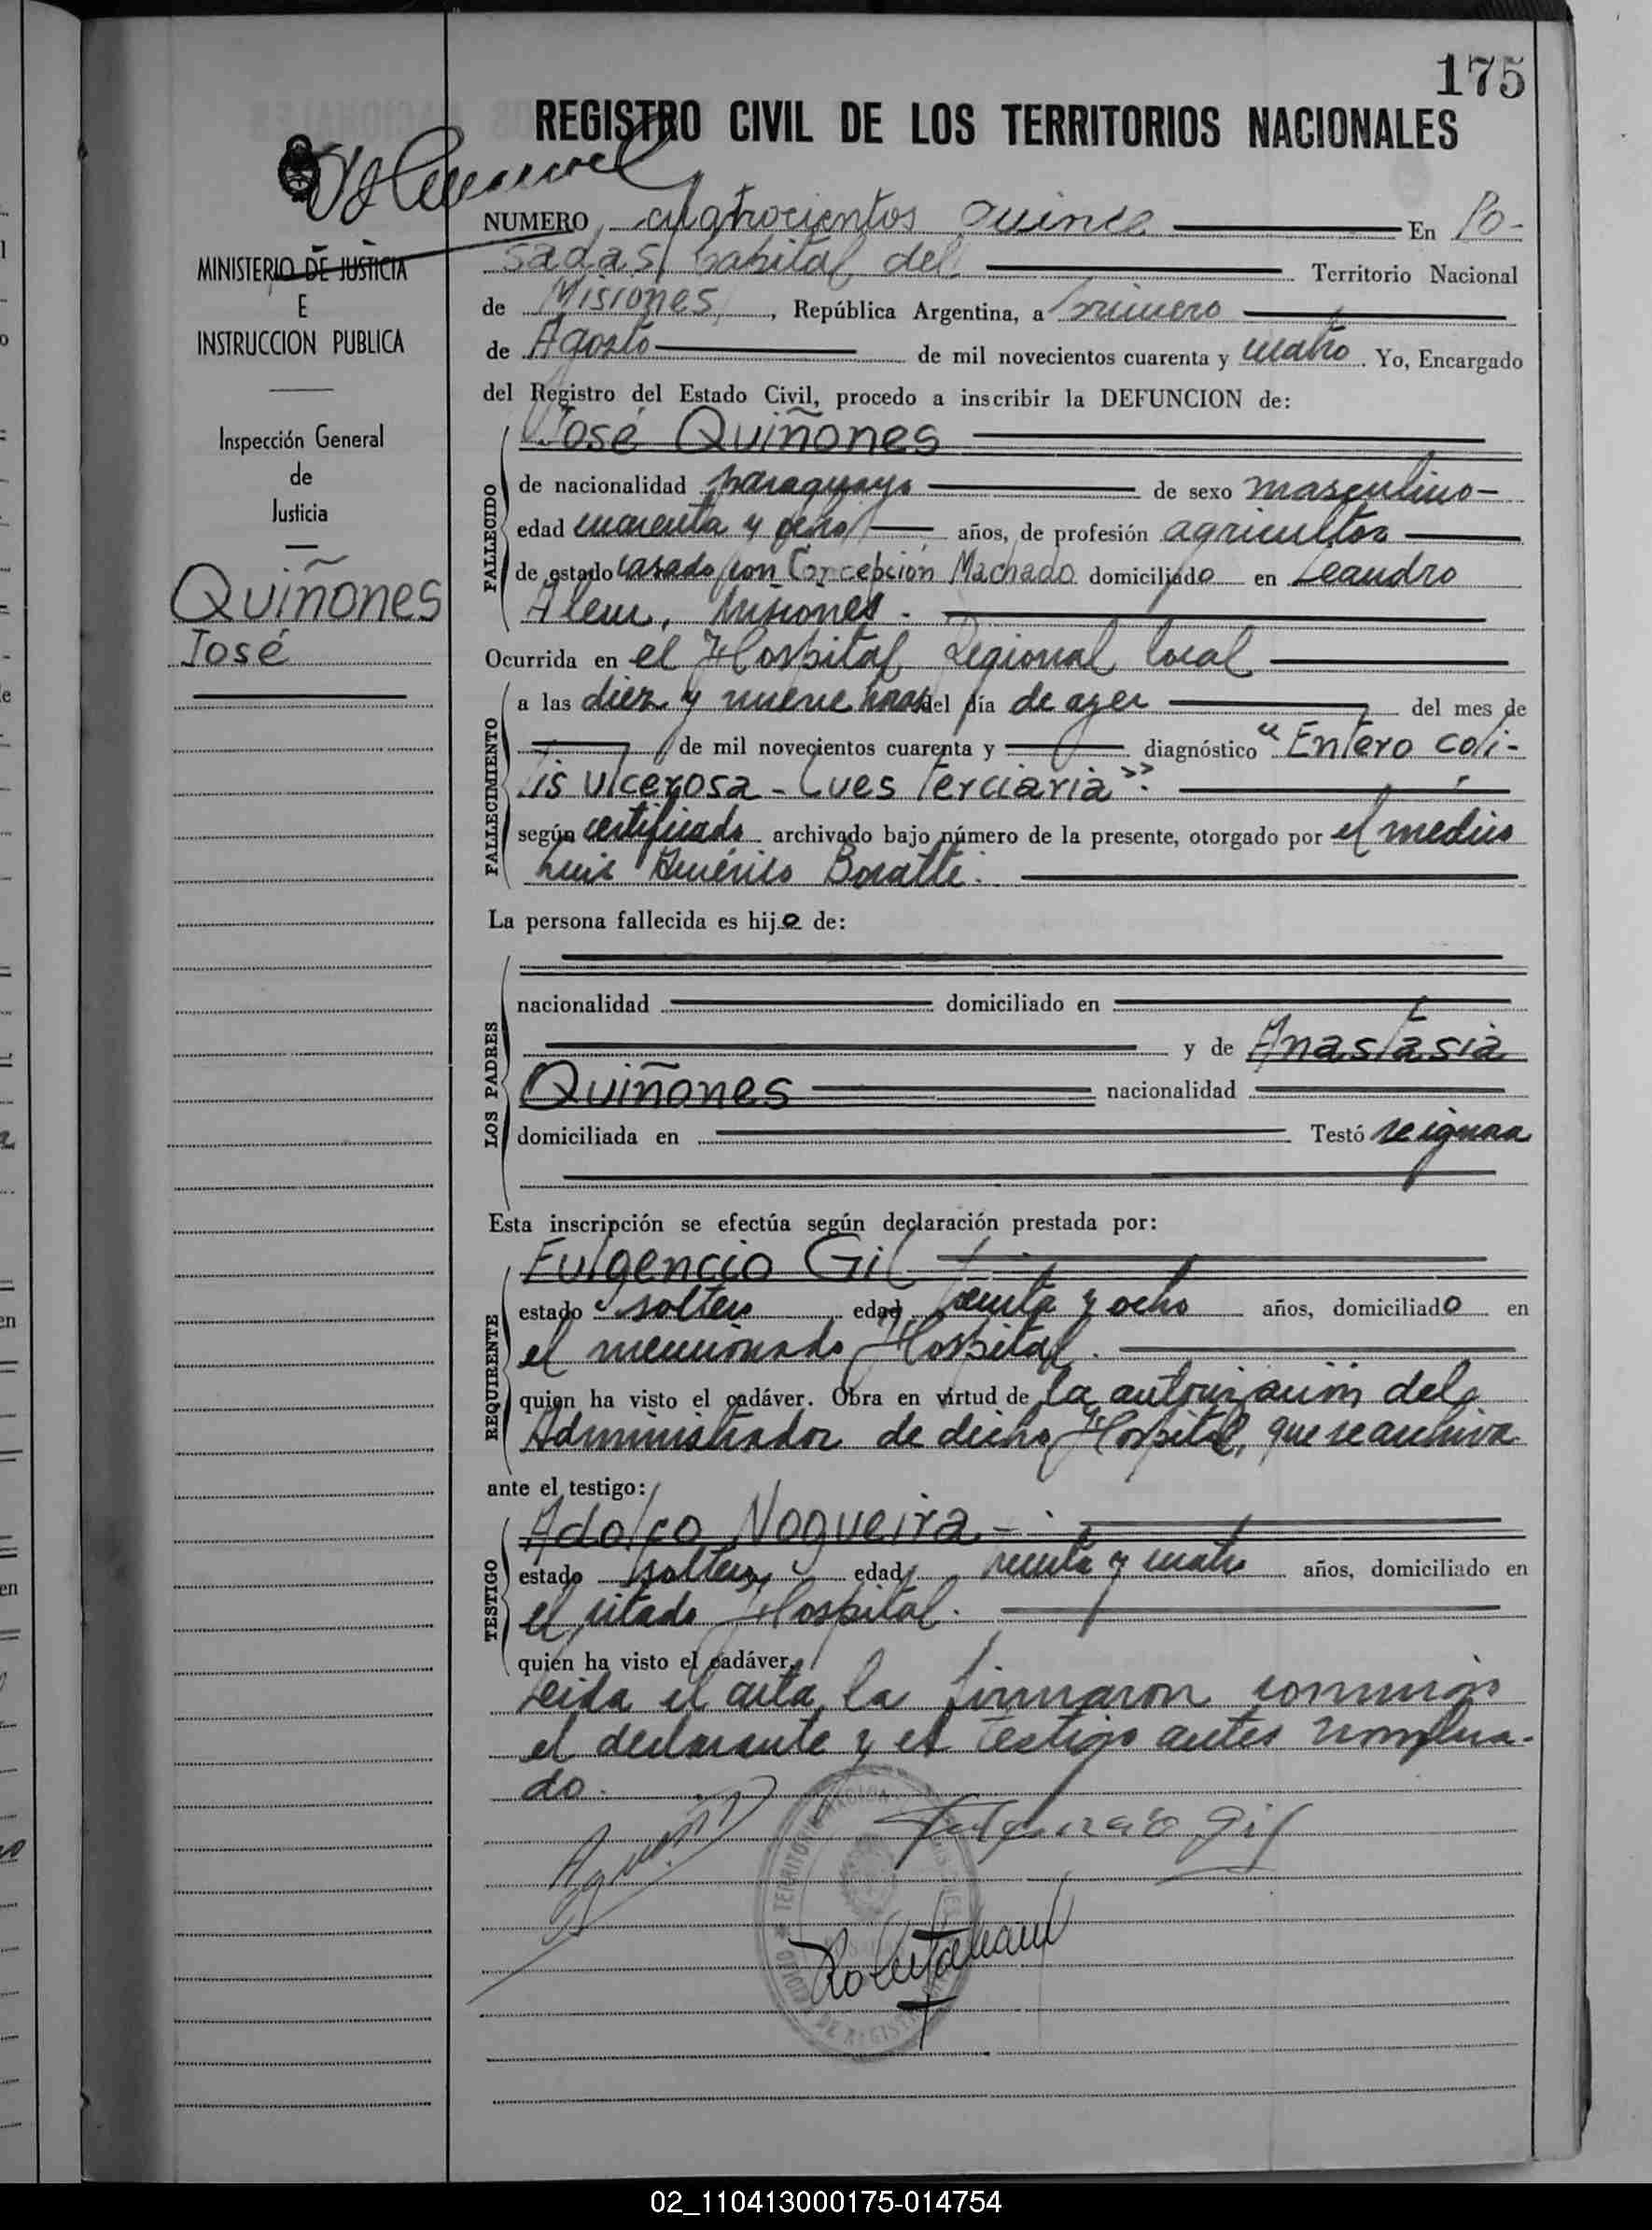 175
REGISTRO CIVIL DE LOS TERRITORIOS NACIONALES
MINISTERIO DE JUSTICIA
E
INSTRUCCION PUBLICA
Inspección General
de
Justicia
Quiñones
José
NUMERO cuatrocientos quince En Po-
sadas, Capital del Territorio Nacional
de Misiones, República Argentina, a primero
de Agosto de mil novecientos cuarenta y cuatro Yo, Encargado
del Registro del Estado Civil, procedo a inscribir la DEFUNCION de:
José Quiñones
FALLECIDO
de nacionalidad paraguayo de sexo masculino-
edad cuarenta y ocho años, de profesión agricultor
de estado casado con Concepción Machado domiciliado en Leandro
Alem, Misiones.
Ocurrida en el Hospital Regional local
FALLECIMIENTO
a las diez y nueve horas del día de ayer del mes de
de mil novecientos cuarenta y diagnóstico "Entero coli-
tis ulcerosa - Lues terciaria".
según certificado archivado bajo número de la presente, otorgado por el médico
Luis Américo
La persona fallecida es hijo de:
LOS PADRES
nacionalidad domiciliado en
y de Anastasia
Quiñones nacionalidad
domiciliada en Testó se ignora
Esta inscripción se efectúa según declaración prestada por:
Fulgencio Gil
REQUIRENTE
estado soltero edad y ocho años, domiciliado en
el mencionado Hospital.
quien ha visto el cadáver. Obra en virtud de la autorización del
Administrador de dicho Hospital, que se archiva
ante el testigo:
Adolfo Nogueira -
TESTIGO
estado soltero edad y cuatro años, domiciliado en
el citado Hospital.
quien ha visto el cadáver.
Leída el acta, la firmaron conmigo
el declarante y el testigo antes nombra-
do.
Fulgencio Gil
02_110413000175-014754